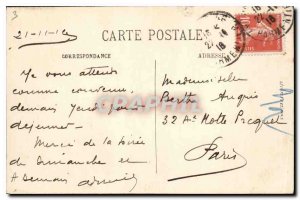 21-11-
CARTE POSTALE
CORRESPONDANCE
ADRESSE
Je vous attends
comme convenu
demain Jeudi pour
dejeuner.
Merci de la soirée
de Dimanche et
a Demain
Mademoiselle
Berthe
32 Av Motte Picquet
Paris